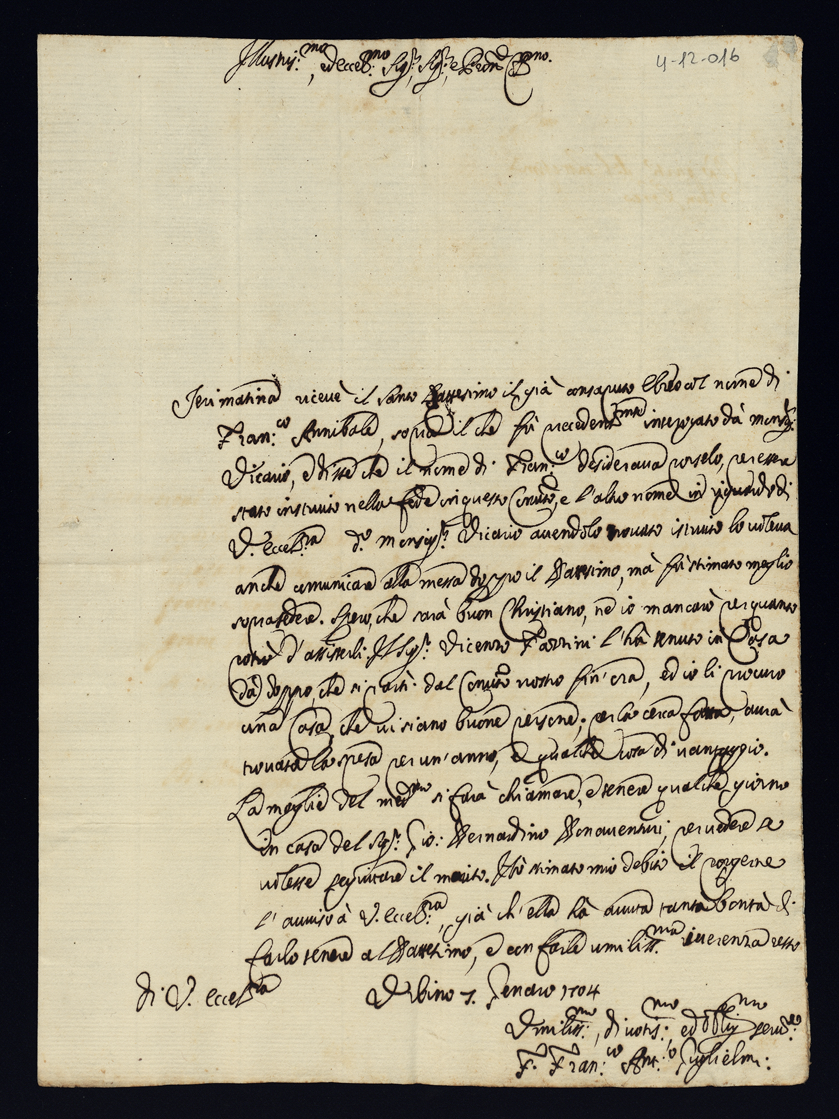 4-12-016
Illustris:mo, ed eccel:mo Sig:r, Sig:r, e Pron
Jeri matina riceuè il santo Battesimo il già consaputo Ebreo col nome di
Fran:co Annibale, sopra il che fù precedentemte interrogato dà monsig:r
Vicario, e disse che il nome di Fran:co desideraua porselo, per essere
stato instruito nella fede in questo Conuto, e l'altro nome in riguardo di
V. Eccel:za do monsig:r Vicario auendolo trouato istruito lo uoleua
anche comunicare alla messa doppo il Battesimo, mà fù stimato meglio
soprasedere. Spero, che sarà buon Christiano, nè io mancarò per quanto
potrò d'assisterli. Il Sig:r Vicenzo Fazzini l'hà tenuto in Casa
dà doppo, che si partì dal Conuto nostro fin' ora, ed io li procuro
una Casa, che ui siano buone persone; per la cerca fatta, aurà
trouata la spesa per un' anno, e qualche cosa di uantaggio.
La moglie del medmo si farà chiamare, e tenere qualche giorno
in casa del Sig:r Gio: Bernardino Bonauenturi, per uedere se
uolesse seguitare il marito. Hò stimato mio debito il porgerne
l'auuiso à V. Eccel:za, già ch'ella hà auuta tanta bontà di
farlo tenere al Battesimo, e con farle umiliss:ma riuerenza resto
di V. Eccel:za Vrbino 7. Genaro 1704
Vmiliss:mo, diuotis:mo, ed obblig:mo seru:re
F. Fran:co Ant:o Guglielmi: